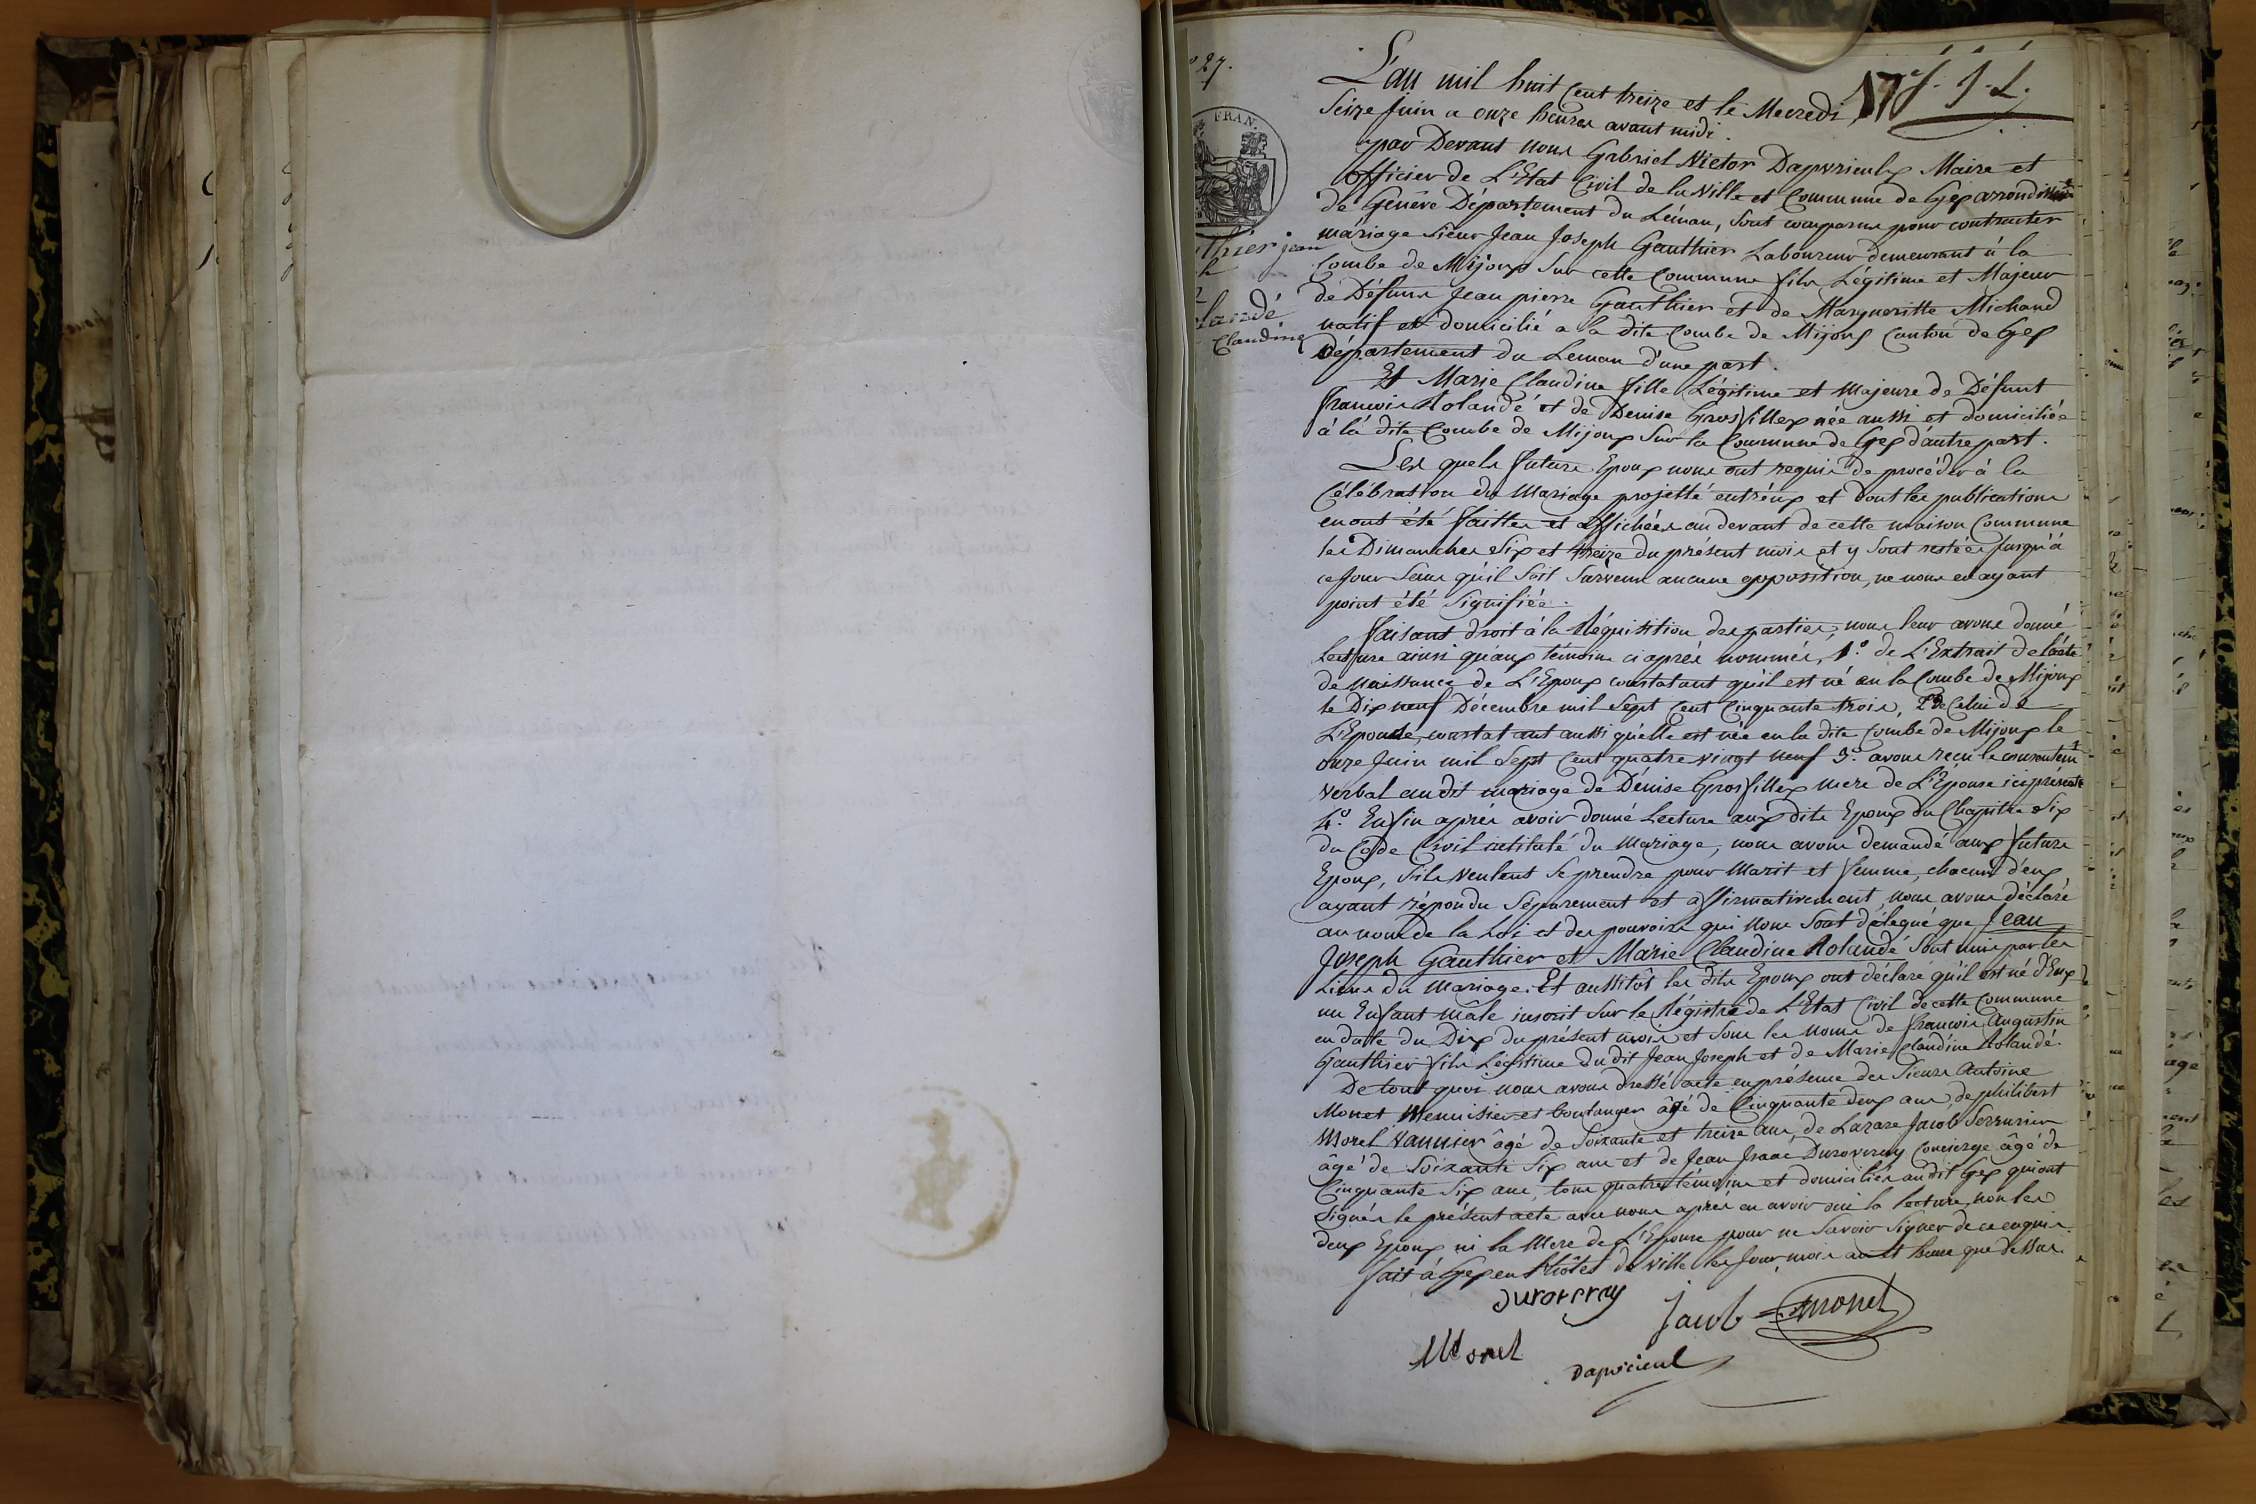 27.
17e f. J. L.
FRAN.
thier jean
landé
Claudine
L'an mil huit Cent treize et le Mecredi
Seize Juin a onze heures avant midi.
par Devant nous Gabriel Victor Dapvrieulx Maire et
officier de L'Etat Civil de la Ville et Commune de Gex arrondissemt
de Genève Département du Leman, Sont comparus pour contracter
mariage Sieur Jean Joseph Gauthier Laboureur demeurant à la
Combe de Mijoux Sur cette Commune fils Légitime et Majeur
de Défunt Jean pierre Gauthier et de Margueritte Michaud
natif et domicilié a la dite Combe de Mijoux Canton de Gex
Département du Leman d'une part.
Et Marie Claudine fille Légitime et Majeure de Défunt
francois Rolandé et de Denise Grosfillex née aussi et domiciliée
à la dite Combe de Mijoux Sur la Commune de Gex d'autre part.
Les quels futurs Epoux nous ont requis de procéder à la
Célébration du Mariage projetté entr'eux et dont les publications
en ont été faittes et affichées au devant de cette maison Commune
les Dimanches Six et treize du présent mois et y Sont restées Jusqu'à
ce Jour Sans qu'il Soit Survenu aucune opposition, ne nous en ayant
point été Signifiée.
faisant droit à la Réquisition des parties, nous leur avons donné
Lecture ainsi qu'aux témoins ci après nommés, 1.° de L'Extrait de l'acte
de Naissance de L'Epoux constatant qu'il est né en la Combe de Mijoux
le Dix neuf Décembre mil Sept Cent Cinquante trois, 2° de Celui de
L'Epouse, constatant aussi qu'elle est née en la dite Combe de Mijoux le
onze Juin mil Sept Cent quatre vingt neuf 3.° avons reçu le consentemt
verbal au dit mariage de Dénise Grosfillex mere de L'Epouse ici présente
4.° Enfin après avoir donné Lecture aux dits Epoux du Chapitre Six
du Code Civil intitulé du Mariage, nous avons demandé aux futurs
Epoux, S'ils veulent Se prendre pour Marit et femme, chacun d'eux
ayant répondu Séparement et affirmativement, nous avons déclaré
au nom de la Loi et des pouvoirs qui nous Sont délegué que Jean
Joseph Gauthier et Marie Claudine Rolandé Sont unis par les
Liens du Mariage. Et aussitôt les dits Epoux ont déclaré qu'il est né d'Eux
un Enfant mâle inscrit Sur le Régistre de L'Etat Civil de cette Commune
en datte du Dix du présent mois et Sous les noms de francois Augustin
Gauthier fils Légitime du dit Jean Joseph et de Marie Claudine Rolandé.
De tout quoi nous avons dressé acte en présence des Sieurs Antoine
Monet Menuisier et boulanger âgé de Cinquante deux ans, de philibert
Morel Vannier âgé de Soixante et treize ans, de Lazare Jacob Serrurier
âgé de Soixante Six ans et de Jean Isaac Duroveray Concierge âgé de
Cinquante Six ans, tous quatre témoins et domiciliés au dit Gex qui ont
Signés le présent acte avec nous après en avoir ouï la lecture, non les
deux Epoux ni la Mere de L'Epouse pour ne Savoir Signer de ce enquis
fait à Gex en L'hôtel de ville les Jour, mois an et heure que dessus.
duroveray
Jacob
Monet
Morel
Dapvrieul